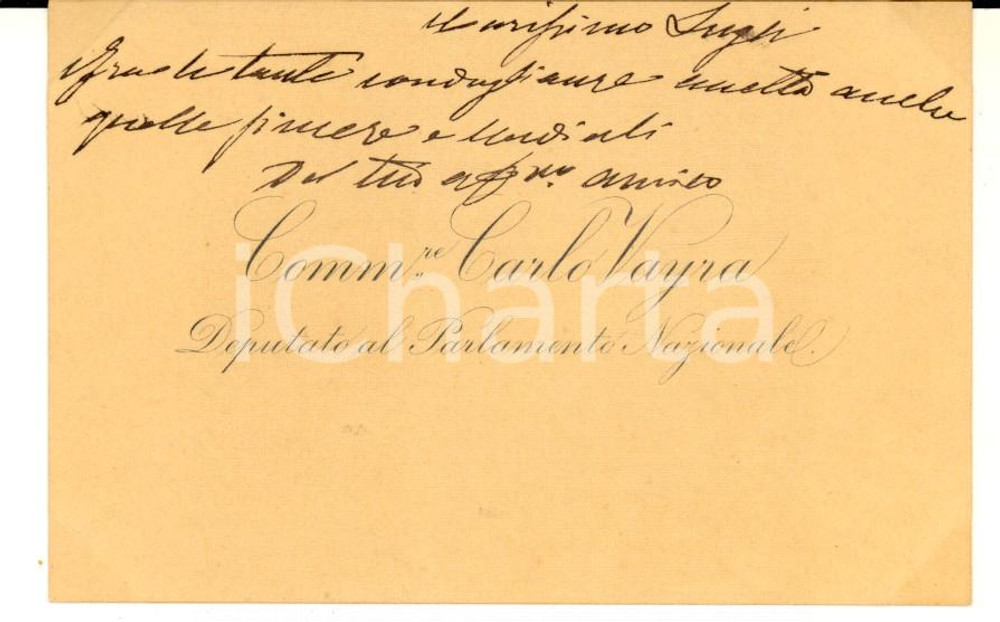 Carissimo Lugli
Fra le tante condoglianze ametti anche
quelle sincere e cordiali
Del tuo aff.mo amico
Comm.re Carlo Vayra
Deputato al Parlamento Nazionale.
iCharta